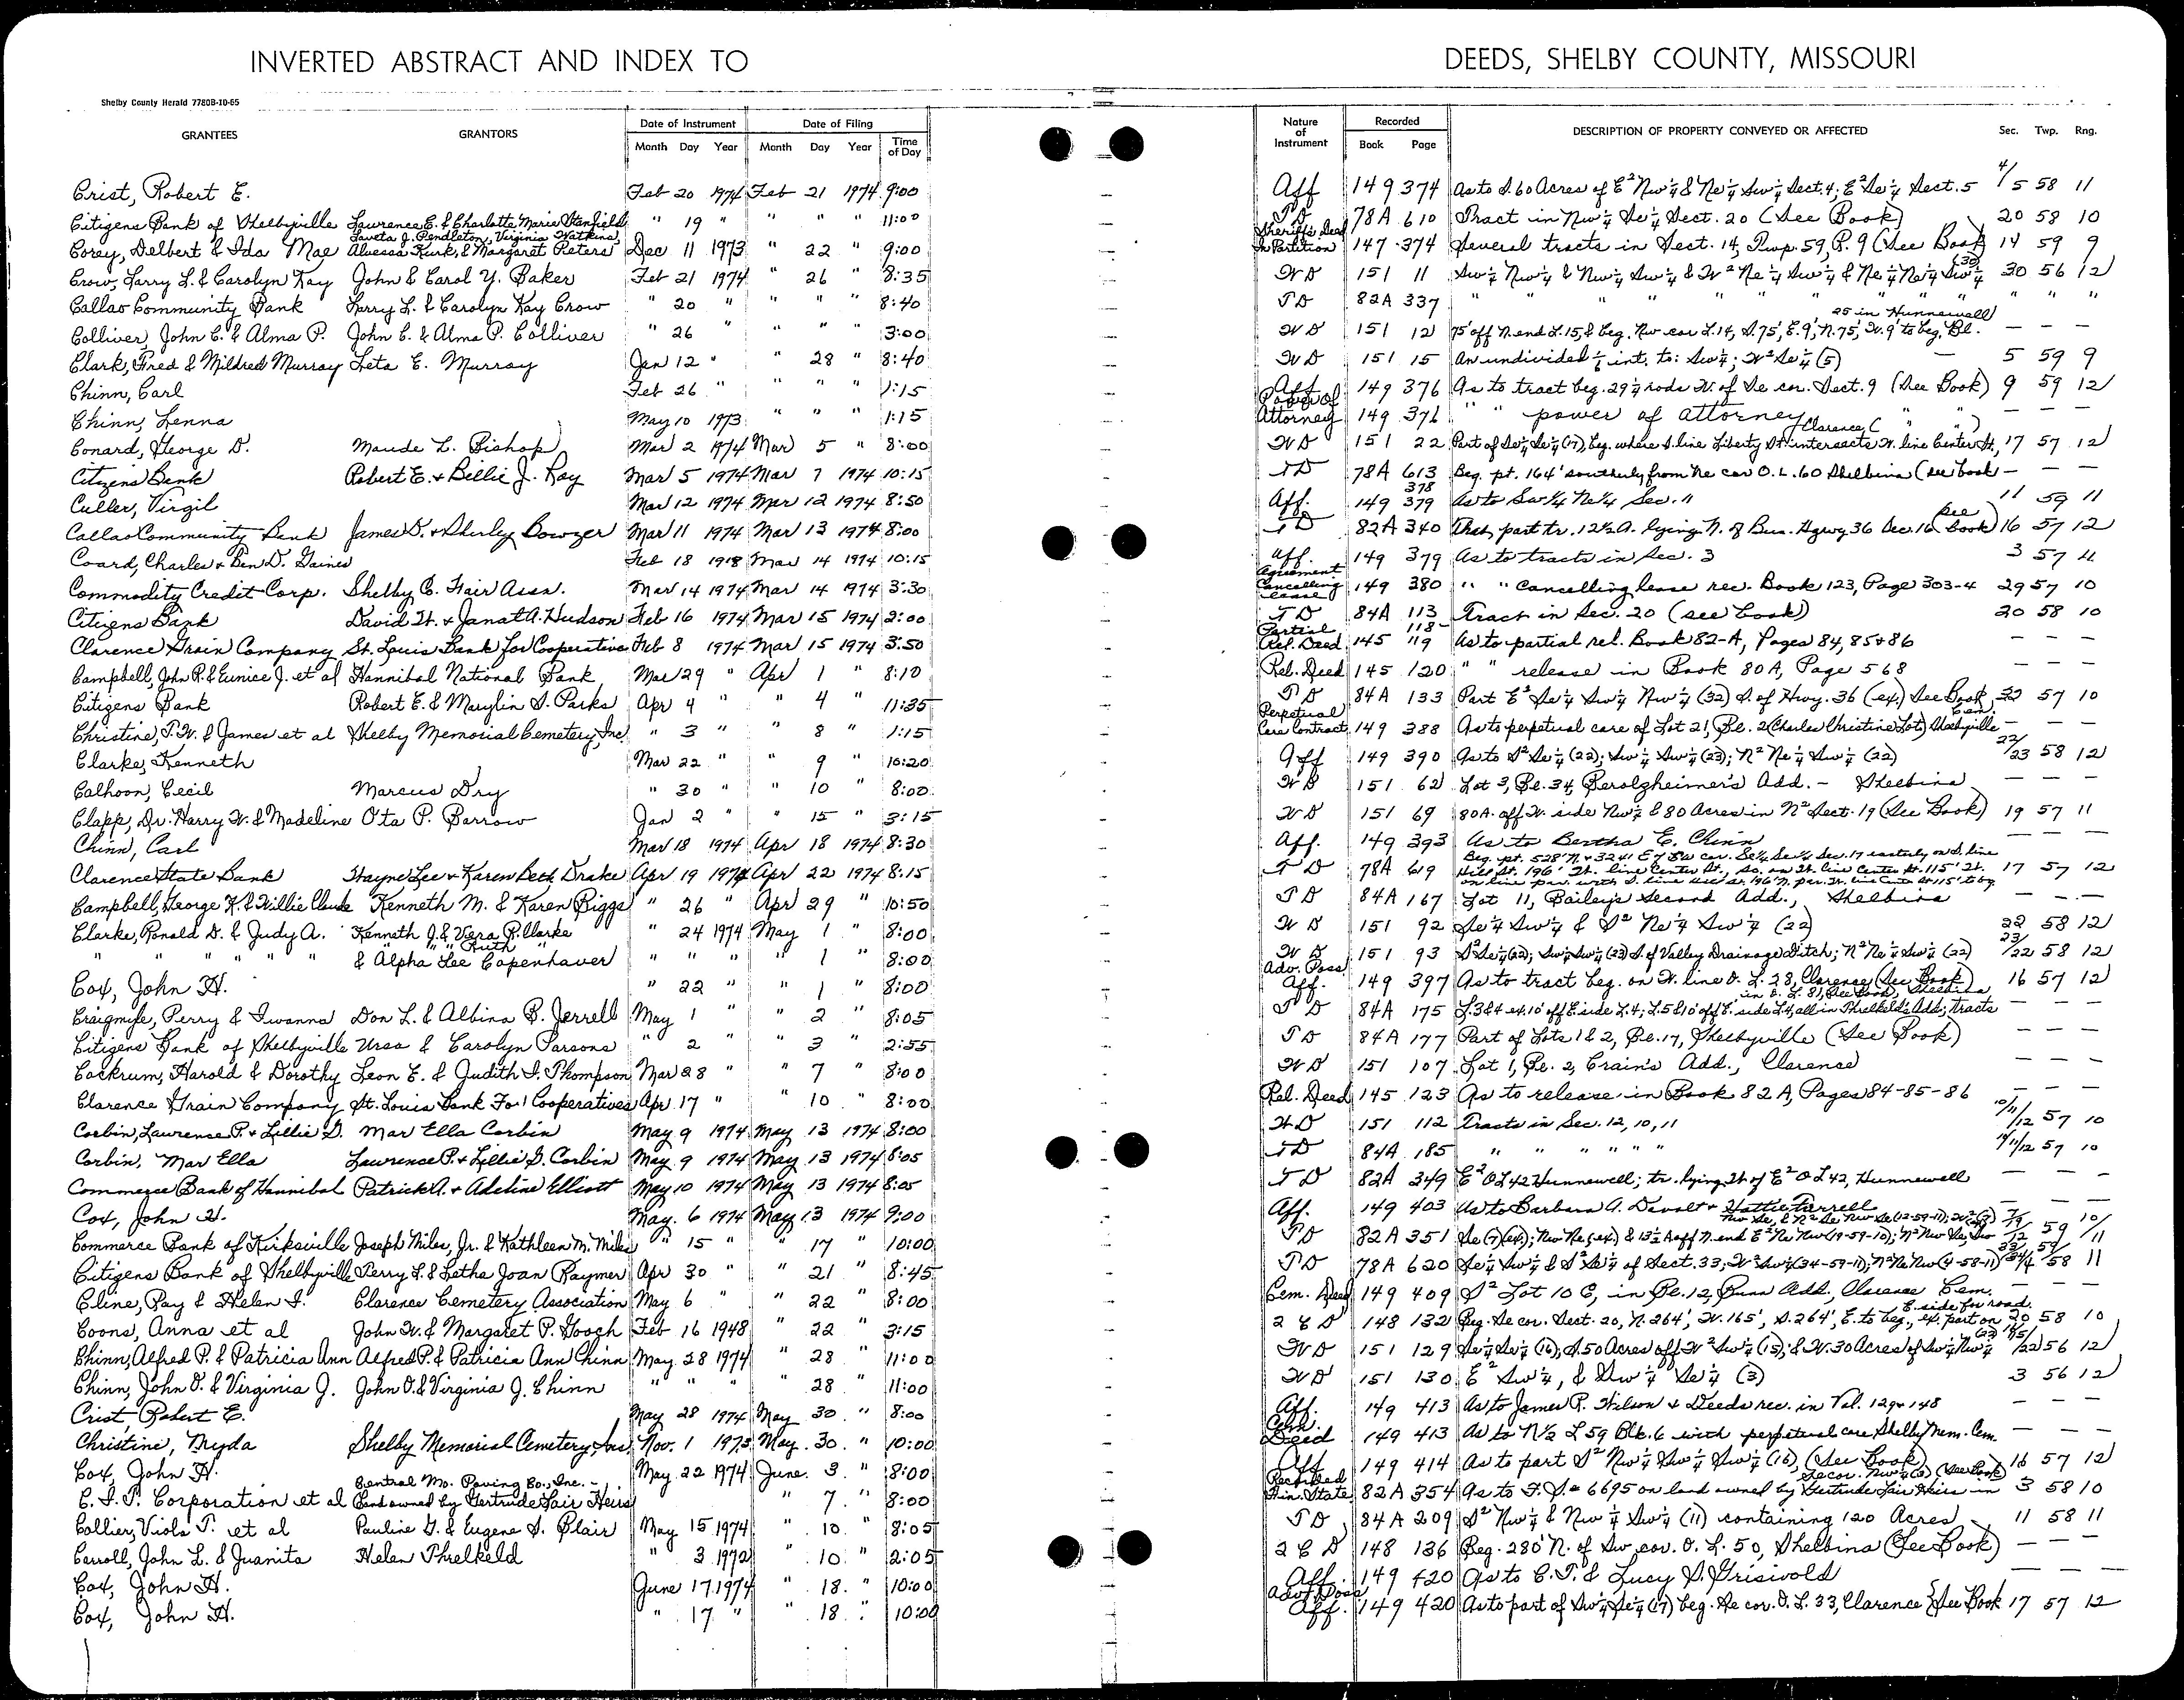 INVERTED ABSTRACT AND INDEX TO DEEDS, SHELBY COUNTY, MISSOURI
Shelby County Herald 7780B-10-65
GRANTEES GRANTORS Date of Instrument Month Day Year Date of Filing Month Day Year Time of Day Nature of Instrument Recorded Book Page DESCRIPTION OF PROPERTY CONVEYED OR AFFECTED Sec. Twp. Rng.
Crist, Robert E. Feb 20 1974 Feb 21 1974 9:00 Aff 149 374 As to S. 60 Acres of E² Nw¼ & Ne¼ Sw¼ Sect. 4; E² Se¼ Sect. 5 4/5 58 11
Citizens Bank of Shelbyville Lawrence E. & Charlotte Marie Stanfield " 19 " " " " 11:00 T D 78A 610 Tract in Nw¼ Se¼ Sect. 20 (See Book) 20 58 10
Corey, Delbert & Ida Mae Laveta J. Pendleton, Virginia Watkins, Alvessa Kirk, & Margaret Peters Dec 11 1973 " 22 " 9:00 Sheriff's Deed In Partition 147 374 Several tracts in Sect. 14, Twp. 59, R. 9 (See Book) 14 59 9
Crow, Larry L. & Carolyn Kay John & Carol Y. Baker Feb 21 1974 " 26 " 8:35 W D 151 11 Sw¼ Nw¼ & Nw¼ Sw¼ & W² Ne¼ Sw¼ & Ne¼ Ne¼ Sw¼ (30) 30 56 12
Callao Community Bank Larry L. & Carolyn Kay Crow " 20 " " " " 8:40 T D 82A 337 " " " " " " " " " " "
Colliver, John C. & Alma P. John C. & Alma P. Colliver " 26 " " " " 3:00 W D 151 12 75' off N. end L. 15, & beg. Nw cor L. 14, S. 75', E. 9', N. 75', W. 9' to beg, Bl. 25 in Hunnewell — — —
Clark, Fred & Mildred Murray Leta E. Murray Jan 12 " " 28 " 8:40 W D 151 15 An undivided int. to: Sw¼; W² Se¼ (5) — 5 59 9
Chinn, Carl Feb 26 " " " " 1:15 Aff 149 376 As to tract beg. 29¼ rods W. of Se cor. Sect. 9 (See Book) 9 59 12
Chinn, Lenna May 10 1973 " " " 1:15 Power of Attorney 149 376 " " power of attorney ( " " ) — — —
Conard, George D. Maude L. Bishop Mar 2 1974 Mar 5 " 8:00 W D 151 22 Part of Se¼ Se¼ (17), beg. where S. line Liberty St. intersects W. line Center St., Clarence 17 57 12
Citizens Bank Robert E. & Billie J. Ray Mar 5 1974 Mar 7 1974 10:15 T D 78A 613 Beg. pt. 164' southerly from Ne cor O. L. 60 Shelbina (see book — — —
Culler, Virgil Mar 12 1974 Mar 12 1974 8:50 Aff. 149 378 379 As to Sw¼ Ne¼ Sec. 11 11 59 11
Callao Community Bank James D. & Shirley Bowzer Mar 11 1974 Mar 13 1974 8:00 T D 82A 340 That part tr. 12½ A. lying N. of Bus. Hgwy 36 Sec. 16 (see book) 16 57 12
Coard, Charles & Ben D. Gaines Feb 18 1918 Mar 14 1974 10:15 Aff. 149 379 As to tracts in Sec. 3 3 57 11
Commodity Credit Corp. Shelby C. Fair Assn. Mar 14 1974 Mar 14 1974 3:30 Agreement Cancelling Lease 149 380 " " Cancelling lease rec. Book 123, Page 303-4 29 57 10
Citizens Bank David W. & Janet A. Hudson Feb 16 1974 Mar 15 1974 2:00 T D 84A 113 Tract in Sec. 20 (see book) 20 58 10
Clarence Grain Company St. Louis Bank for Cooperative Feb 8 1974 Mar 15 1974 3:50 Partial Rel. Deed 145 118-119 As to partial rel. Book 82-A, Pages 84, 85 & 86 — — —
Campbell, John P. & Eunice J. et al Hannibal National Bank Mar 29 " Apr 1 " 8:10 Rel. Deed 145 120 " " release in Book 80A, Page 568 — — —
Citizens Bank Robert E. & Marylin S. Parks Apr 4 " " 4 " 11:35 T D 84A 133 Part E² Se¼ Sw¼ Nw¼ (32) S. of Hwy. 36 (ex.) See Book 32 57 10
Christine, T. W. & James et al Shelby Memorial Cemetery, Inc. " 3 " " 8 " 1:15 Perpetual Care Contract 149 388 As to perpetual care of Lot 21, Bl. 2 (Charles Christine Lot) Shelbyville Cem. — — —
Clarke, Kenneth Mar 22 " " 9 " 10:20 Aff 149 390 As to S² Se¼ (22); Sw¼ Sw¼ (23); N² Ne¼ Sw¼ (22) 22/23 58 12
Calhoon, Cecil Marcus Dry " 30 " " 10 " 8:00 W D 151 62 Lot 3, Bl. 34, Berolzheimer's Add. - Shelbina — — —
Clapp, Dr. Harry W. & Madeline Ota P. Barrow Jan 2 " " 15 " 3:15 W D 151 69 80 A. off W. side Nw¼ & 80 Acres in N² Sect. 19 (See Book) 19 57 11
Chinn, Carl Mar 18 1974 Apr 18 1974 8:30 Aff. 149 393 As to Bertha E. Chinn — — —
Clarence State Bank Wayne Lee & Karen Beth Drake Apr 19 1974 Apr 22 1974 8:15 T D 78A 619 Beg. pt. 528' N. & 324' E of Sw cor. Se¼ Se¼ Sec. 17 easterly on S. line Hill St. 196' W. line Center St., So. on W. line Center St. 115' W. on line par. with S. line 17 57 12
Campbell, George K. & Willie Claude Kenneth M. & Karen Biggs " 26 " Apr 29 " 10:50 T D 84A 167 Lot 11, Bailey's Second Add., Shelbina — —
Clarke, Ronald D. & Judy A. Kenneth J. & Vera R. Clarke " 24 1974 May 1 " 8:00 W D 151 92 Se¼ Sw¼ & S² Ne¼ Sw¼ (22) 22 58 12
" " " " " " " " Ruth " & Alpha Lee Copenhaver " " " 1 " 8:00 W D 151 93 S² Se¼ (22); Sw¼ Sw¼ (23) S. of Valley Drainage Ditch; N² Ne¼ Sw¼ (22) 23/22 58 12
Cox, John H. " 22 " " 1 " 8:00 Adv. Poss. Aff. 149 397 As to tract beg. on W. line O. L. 28, Clarence (See Book) 16 57 12
Craigmyle, Perry & Iwanna Don L. & Albina B. Jerrell May 1 " " 2 " 8:05 T D 84A 175 L. 3 & 4 ex. 10' off E. side L. 4; L. 5 & 10' off E. side L 4, all in Threlkeld's Add.; Tracts in O. L. 81, (See Book), Shelbina — — —
Citizens Bank of Shelbyville Ursa & Carolyn Parsons " 2 " 3 " 2:55 T D 84A 177 Part of Lots 1 & 2, Bl. 17, Shelbyville (See Book) — — —
Cockrum, Harold & Dorothy Leon E. & Judith I. Thompson Mar 28 " " 7 " 8:00 W D 151 107 Lot 1, Bl. 2, Crain's Add., Clarence — — —
Clarence Grain Company St. Louis Bank For Cooperatives Apr 17 " " 10 " 8:00 Rel. Deed 145 123 As to release in Book 82A, Pages 84-85-86 — — —
Corbin, Lawrence P. & Lillie G. Mar Ella Corbin May 9 1974 May 13 1974 8:00 W D 151 112 Tracts in Sec. 12, 10, 11 10/11/12 57 10
Corbin, Mar Ella Lawrence P. & Lillie G. Corbin May 9 1974 May 13 1974 8:05 T D 84A 185 " " " " " 10/11/12 57 10
Commerce Bank of Hannibal Patrick A. & Adeline Elliott May 10 1974 May 13 1974 8:05 T D 82A 349 E² OL 42 Hunnewell; tr. lying W. of E² OL 42, Hunnewell — — —
Cox, John H. May 6 1974 May 13 1974 9:00 Aff. 149 403 As to Barbara A. Devolt & Hattie Farrell — — —
Commerce Bank of Kirksville Joseph Miles, Jr. & Kathleen M. Miles " 15 " " 17 " 10:00 T D 82A 351 Se (7) (ex.); Nw Ne (ex.) & 13½ A off N. end E² Ne Nw (19-59-10); N² Nw Se, 59
Citizens Bank of Shelbyville Perry L. & Letha Joan Raymer Apr 30 " " 21 " 8:45 T D 78A 620 Se¼ Sw¼ & S² Se¼ of Sect. 33; W² Sw¼ (34-59-11); N² Ne Nw (4-58-11) 58 11
Cline, Ray & Helen I. Clarence Cemetery Association May 6 " " 22 " 8:00 Cem. Deed 149 409 S² Lot 10 C, in Bl. 12, Bunn Add., Clarence Cem. — — —
Coons, Anna et al John W. & Margaret P. Gooch Feb 16 1948 " 22 " 3:15 2 C D 148 132 Beg. Se cor. Sect. 20, N. 264', W. 165', S. 264', E. to beg., ex. part on E. side for road. 20 58 10
Chinn, Alfred P. & Patricia Ann Alfred P. & Patricia Ann Chinn May 28 1974 " 28 " 11:00 W D 151 129 Se¼ Se¼ (16), S. 50 Acres off W² Sw¼ (15), & W. 30 Acres of Nw¼ Nw¼ (22) 16/15/22 56 12
Chinn, John O. & Virginia J. John O. & Virginia J. Chinn " " " 28 11:00 W D 151 130 E² Sw¼, & Sw¼ Se¼ (3) 3 56 12
Crist, Robert E. May 28 1974 May 30 " 8:00 Aff. 149 413 As to James P. Wilson & Deeds rec. in Vol. 129 & 148 — — —
Christine, Nyda Shelby Memorial Cemetery, Inc Nov. 1 1973 May 30 " 10:00 Cem. Deed 149 413 As to N½ L 59 Blk. 6 with perpetual care Shelby Mem. Cem. — — —
Cox, John H. May 22 1974 June 3 " 8:00 Aff 149 414 As to part S² Nw¼ Sw¼ Sw¼ (16), (See Book) 16 57 12
C. I. T. Corporation et al Central Mo. Paving Co., Inc. - Land owned by Gertrude Lair Heirs " 7 " 8:00 Rectified Fin. State. 82A 354 As to F. S. # 6695 on land owned by Gertrude Lair Heirs in Se cor. Nw¼ (3) (See Book) 3 58 10
Collier, Viola T. et al Pauline G. & Eugene S. Blair May 15 1974 " 10 " 8:05 T D 84A 209 S² Nw¼ & Nw¼ Sw¼ (11) containing 120 Acres 11 58 11
Carroll, John L. & Juanita Helen Threlkeld " 3 1972 " 10 " 2:05 2 C D 148 136 Beg. 280' N. of Sw cor. O. L. 50, Shelbina (See Book) — —
Cox, John H. June 17 1974 " 18 " 10:00 Aff. 149 420 As to C. T. & Lucy S. Grisivold — — —
Cox, John H. " 17 " " 18 " 10:00 Adv. Poss Aff. 149 420 As to part of Sw¼ Se¼ (17) beg. Se cor. O. L. 33, Clarence (See Book 17 57 12